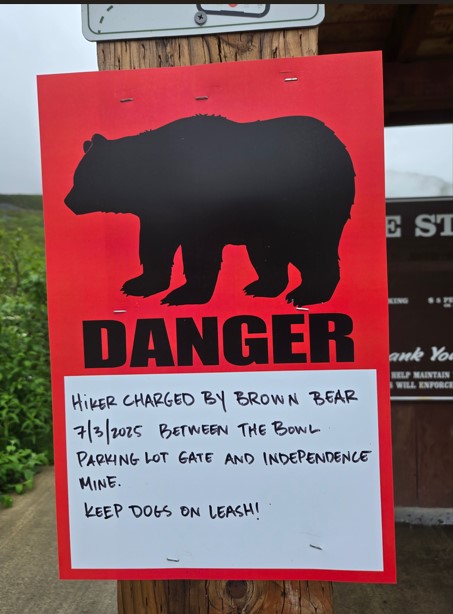 DANGER
HIKER CHARGED BY BROWN BEAR
7/3/2025 BETWEEN THE BOWL
PARKING LOT GATE AND INDEPENDENCE
MINE.
KEEP DOGS ON LEASH!
E ST
KING
ank You
HELP MAINTAIN
WILL ENFORCE